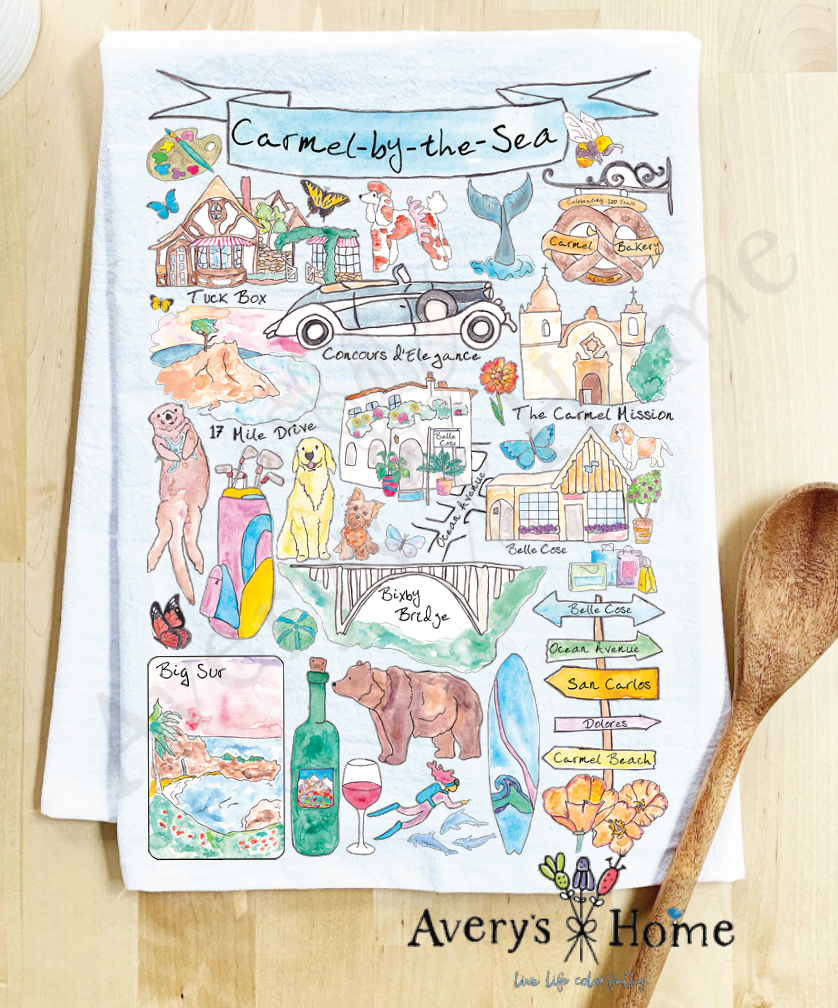 Carmel-by-the-Sea
Celebrating 120 Years
Carmel Bakery
Tuck Box
Concours d'Elegance
The Carmel Mission
17 Mile Drive
Belle
Cose
Ocean Avenue
Belle Cose
Bixby
Bridge
Belle Cose
Ocean Avenue
San Carlos
Dolores
Carmel Beach
Big Sur
Avery's Home
live life colorfully
Avery's Home